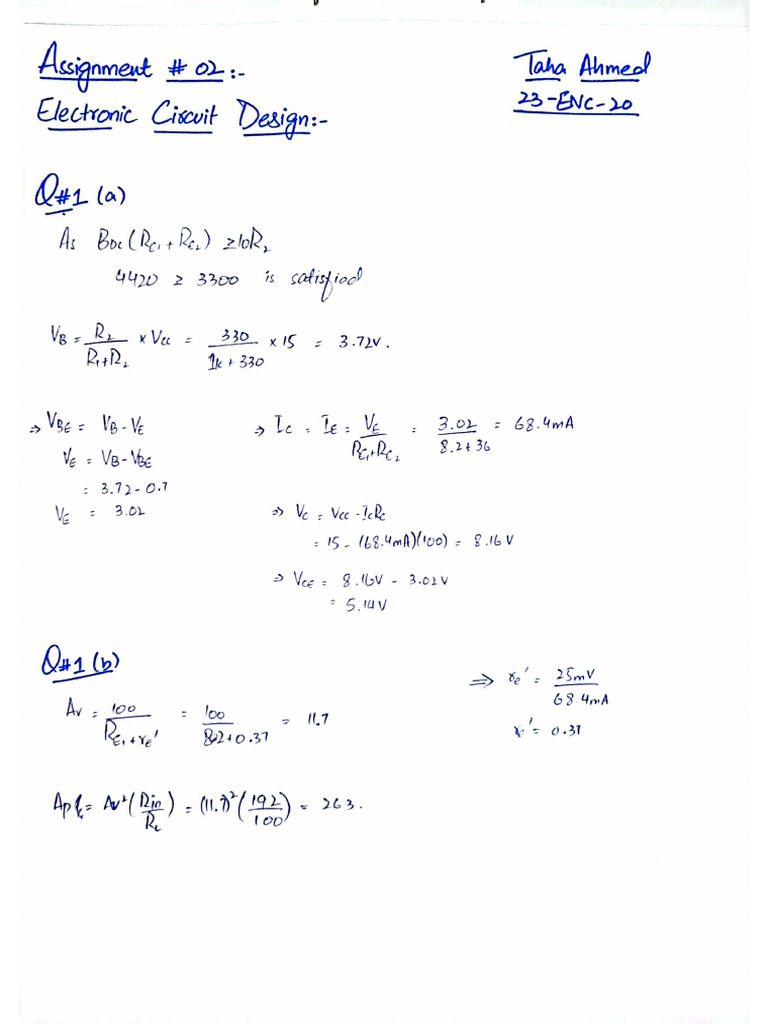 Assignment # 02:-
Taha Ahmed
Electronic Circuit Design:-
23-ENC-20
Q#1 (a)
As BDC (RE1 + RE2) ≥ 10R2
4420 ≥ 3300 is satisfied
VB = R2 / R1+R2 × Vcc = 330 / 1k + 330 × 15 = 3.72V.
⇒ VBE = VB - VE
VE = VB - VBE
= 3.72 - 0.7
VE = 3.02
⇒ Ic = IE = VE / RE1+RE2 = 3.02 / 8.2+36 = 68.4mA
⇒ Vc = Vcc - IcRc
= 15 - (68.4mA)(100) = 8.16V
⇒ VCE = 8.16V - 3.02V
= 5.14V
Q#1 (b)
Av = 100 / RE1 + re' = 100 / 8.2+0.37 = 11.7
⇒ re' = 25mV / 68.4mA
r' = 0.37
Ap = Av² (Rin / RL) = (11.7)² (192 / 100) = 263.